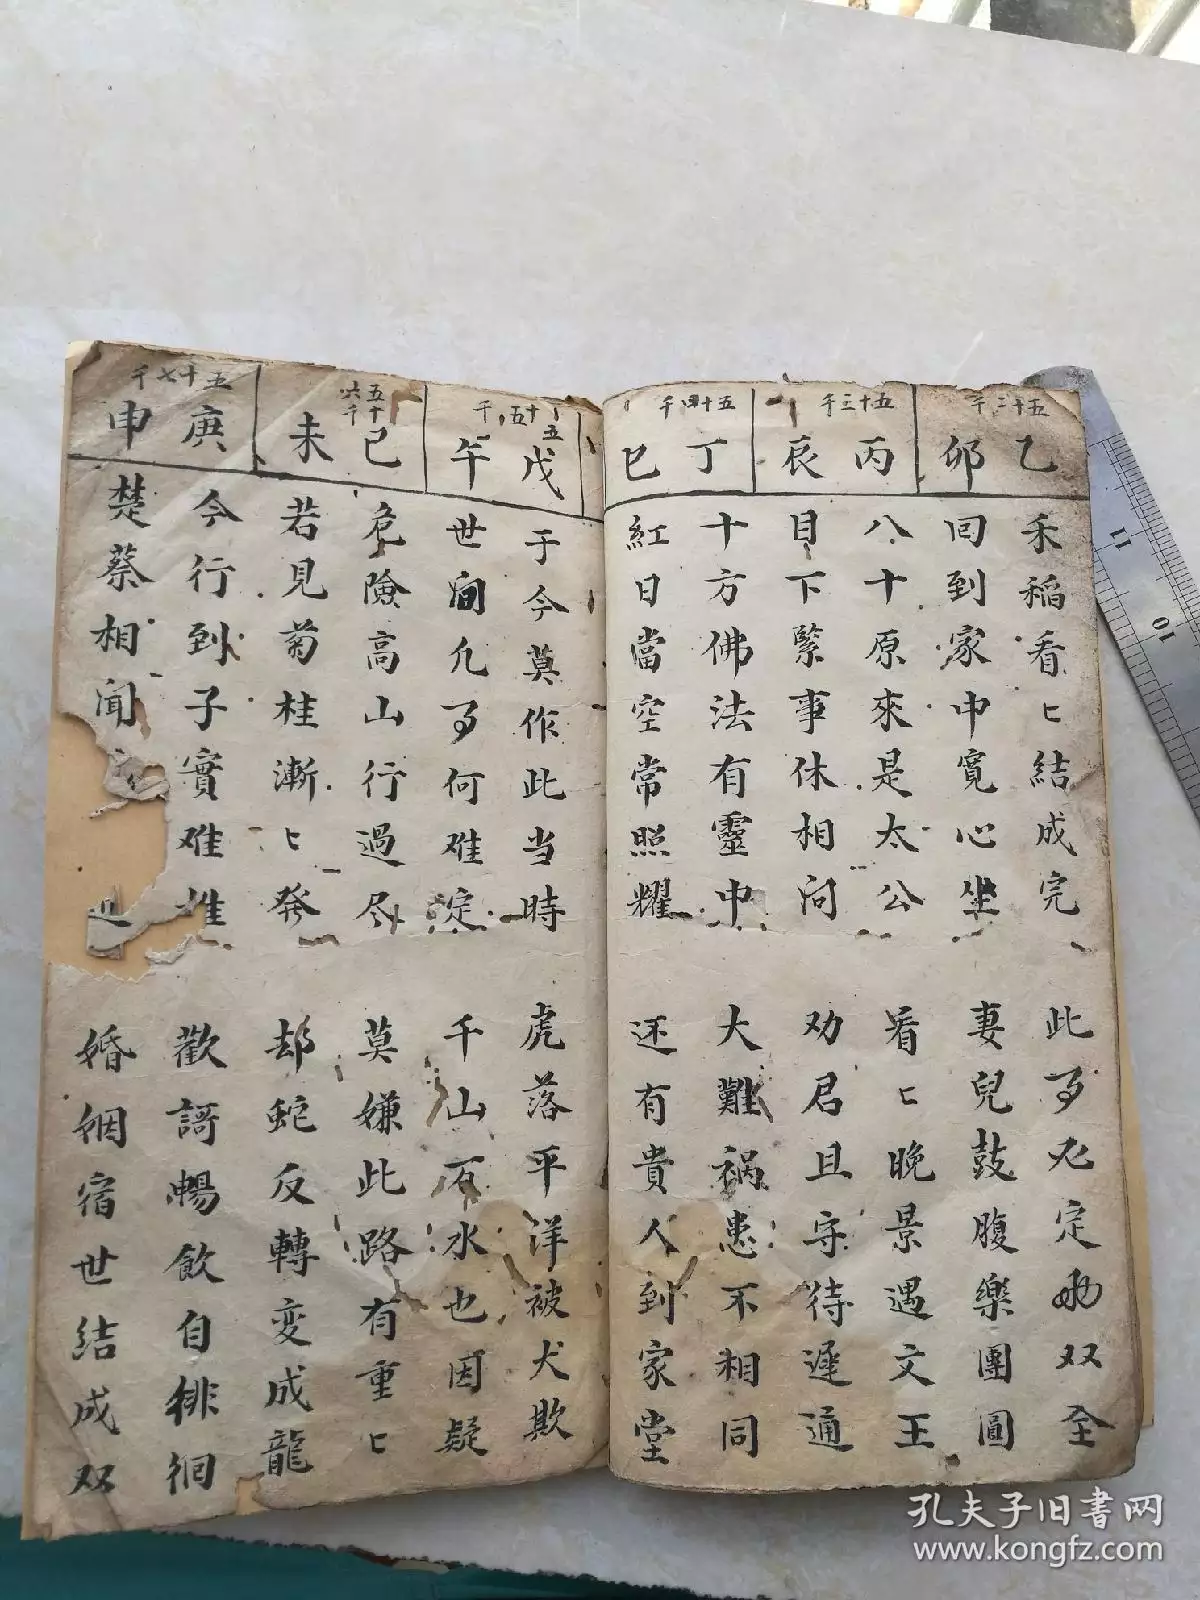 五十二千
乙卯
禾稻看〻結成完
此事九定兩双全
回到家中寛心坐
妻兒鼓腹樂團圓
五十三千
丙辰
八十原來是太公
看〻晚景遇文王
目下緊事休相问
劝君且守待運通
五十四千
丁巳
十方佛法有靈中
大難祸患不相同
紅日當空常照耀
还有貴人到家堂
五十五千
戊午
于今莫作此当時
虎落平洋被犬欺
世间凢事何难定
千山万水也因疑
五十六千
己未
危險高山行過尽
莫嫌此路有重〻
若見菊桂漸〻発
却蛇反轉变成龍
五十七千
庚申
今行到子實难推
歡謌暢飲自徘徊
楚蔡相闻
婚姻宿世结成双
孔夫子旧书网
www.kongfz.com
11
10